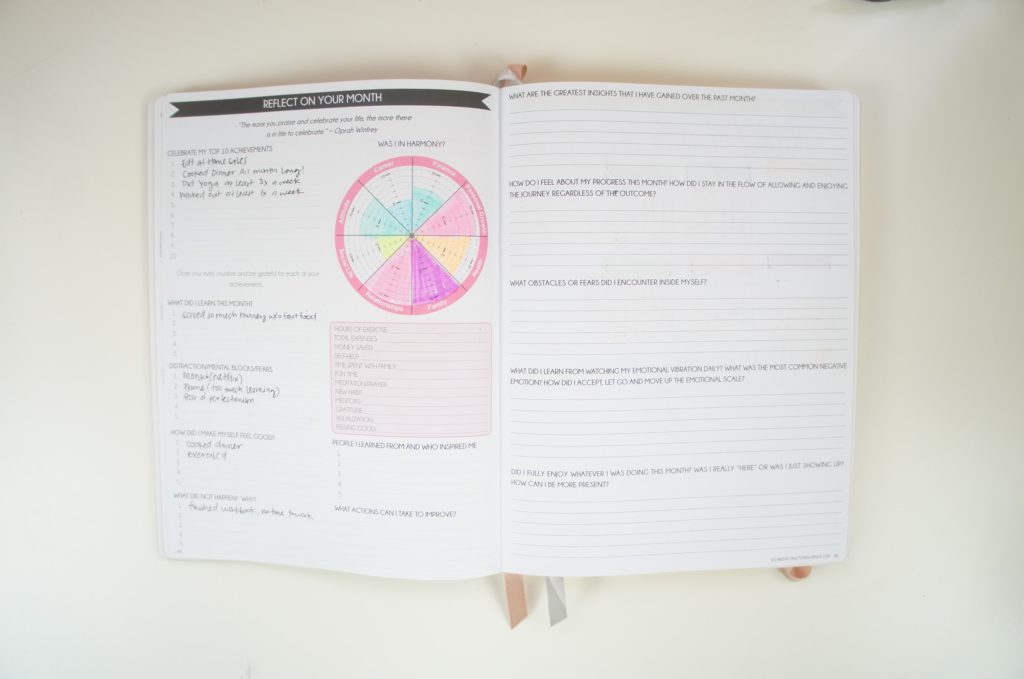 REFLECT ON YOUR MONTH
"The more you praise and celebrate your life, the more there
is in life to celebrate." ~ Oprah Winfrey
CELEBRATE MY TOP 10 ACHIEVEMENTS
1. Eat at Home Sales
2. Cooked Dinner All month long!
3. Did Yoga at least 3x a week
4. Worked out at least 1x a week
5.
6.
7.
8.
9.
10.
Close your eyes, visualize and be grateful for each of your
achievements
WHAT DID I LEARN THIS MONTH?
1. Saved so much money w/o fast food
2.
3.
4.
5.
DISTRACTION/MENTAL BLOCKS/FEARS
1. (netflix)
2. Phone (too much learning)
3. fear of perfectionism
4.
5.
HOW DID I MAKE MYSELF FEEL GOOD?
1. cooked dinner
2. exercised
3.
4.
5.
WHAT DID NOT HAPPEN? WHY?
1. finished workbook, no time to work
2.
3.
4.
5.
WAS I IN HARMONY?
Career
Finance
Personal Growth
Health
Family
Relationships
Social Life
Attitude
HOURS OF EXERCISE:
TOTAL EXPENSES:
MONEY SAVED:
SELF-HELP:
TIME SPENT WITH FAMILY:
FUN TIME:
MEDITATION/PRAYER:
NEW HABIT:
MENTORS:
GRATITUDE:
VISUALIZATION:
FEELING GOOD:
PEOPLE I LEARNED FROM AND WHO INSPIRED ME
1.
2.
3.
4.
5.
WHAT ACTIONS CAN I TAKE TO IMPROVE?
WHAT ARE THE GREATEST INSIGHTS THAT I HAVE GAINED OVER THE PAST MONTH?
HOW DO I FEEL ABOUT MY PROGRESS THIS MONTH? HOW DID I STAY IN THE FLOW OF ALLOWING AND ENJOYING
THE JOURNEY REGARDLESS OF THE OUTCOME?
WHAT OBSTACLES OR FEARS DID I ENCOUNTER INSIDE MYSELF?
WHAT DID I LEARN FROM WATCHING MY EMOTIONAL VIBRATION DAILY? WHAT WAS THE MOST COMMON NEGATIVE
EMOTION? HOW DID I ACCEPT, LET GO AND MOVE UP THE EMOTIONAL SCALE?
DID I FULLY ENJOY WHATEVER I WAS DOING THIS MONTH? WAS I REALLY "HERE" OR WAS I JUST SHOWING UP?
HOW CAN I BE MORE PRESENT?